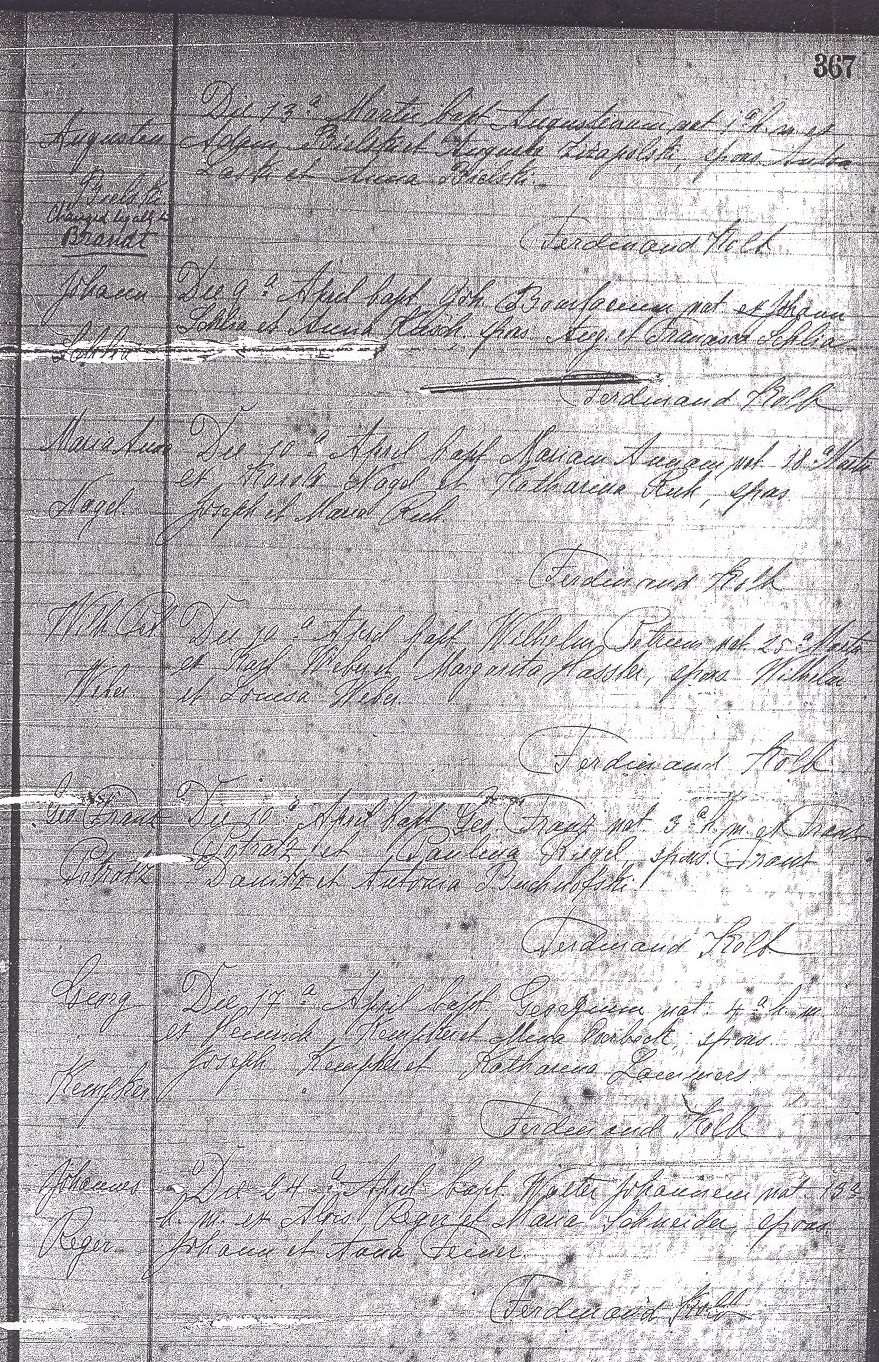 367
Die 13ª Martii bapt Augustinum nat 1ª h. m et
Augustin Adam Bielski et Augusta, spons
Laski et Anna Bielski.
Bielski
Changed legally to
Brandt
Ferdinand Kolb
Johann Die 9ª April bapt. Joh. nat ex Johann
Schlia et Anna spons. Aug. et Francisca Schlia
Ferdinand Kolb
Maria Anna Die 10ª April bapt Mariam Annam nat 18ª Martii
ex Karolo Nagel et Katharina Ruh, spons
Nagel. Joseph et Maria Ruh.
Ferdinand Kolb
Die 10ª April bapt Wilhelm Petrum nat. 25ª Martii
ex Karl Weber et Margarita Hassler, spons Wilhelm
Weber et Louisa Weber.
Ferdinand Kolb
Geo Franz Die 10ª April bapt Geo. Franz nat 3ª h. m. ex Franz
Potratz et Paulina Riegel, spons. Franz
Potratz et Antonia
Ferdinand Kolb
Georg Die 17ª April bapt Georgium nat. 4ª h. m
ex Kempker et Mina spons.
Joseph Kempker et Katharina Lammers.
Kempker
Ferdinand Kolb
Johannes Die 24ª April bapt. Walter Johannem nat 15ª
h. m. ex Alois Reger et Maria Schneider, spons
Reger Johann et Anna
Ferdinand Kolb